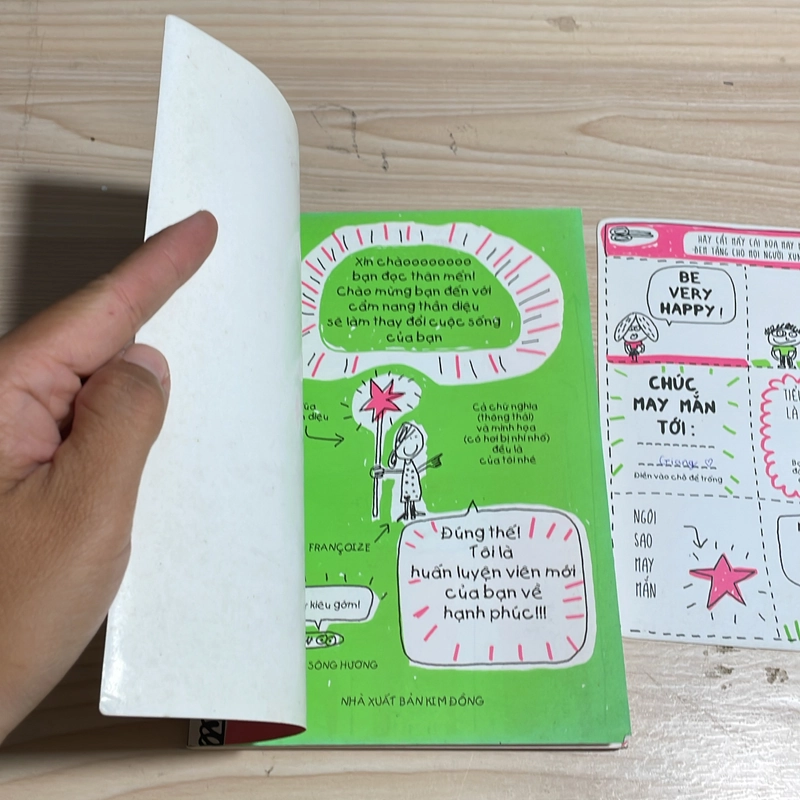 Xin chàooooooooo
bạn đọc thân mến!
Chào mừng bạn đến với
cẩm nang thần diệu
sẽ làm thay đổi cuộc sống
của bạn
diệu
Cả chữ nghĩa
(thông thái)
và minh họa
(có hơi bị nhí nhố)
đều là
của tôi nhé
FRANÇOIZE
Đúng thế!
Tôi là
huấn luyện viên mới
của bạn về
hạnh phúc!!!
kiêu gớm!
SÔNG HƯƠNG
NHÀ XUẤT BẢN KIM ĐỒNG
HÃY CẮT MẤY CÁI BÙA MAY
ĐEM TẶNG CHO MỌI NGƯỜI XUN
BE
VERY
HAPPY!
CHÚC
MAY MẮN
TỚI:
Điền vào chỗ để trống
LÀ
NGÔI
SAO
MAY
MẮN